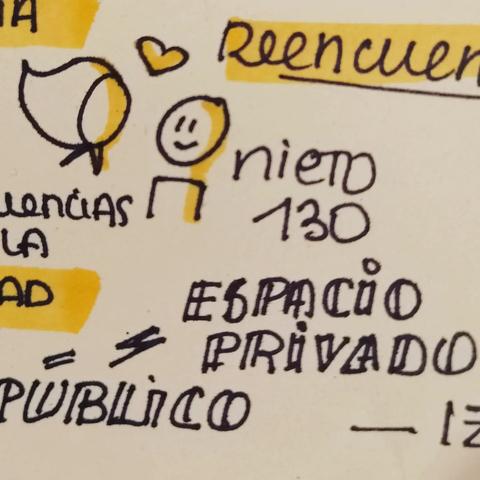 IA
Reencuen
nieto
130
uencias
LA
AD
ESPACIO
PRIVADO
PÚBLICO
— IZ